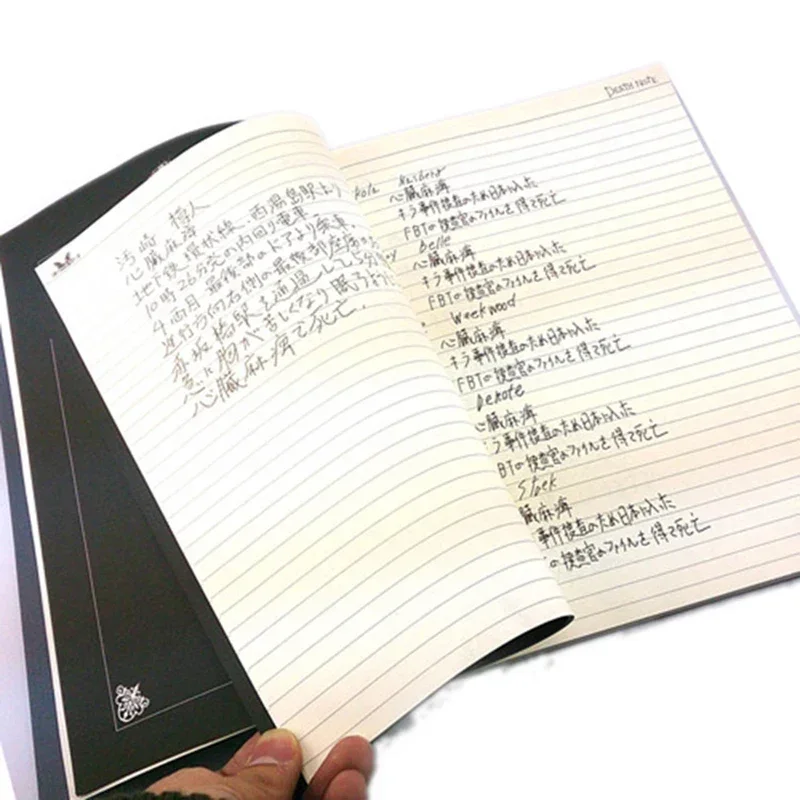 心臓麻痺
地下鉄環状線、西湯島駅より
10時26分発の内回り電車
4両目最後部のドアより乗車
進行方向右側の最後部座席
橋駅を通過して
胸が苦しくなり眠るように
心臓麻痺で死亡.
DEATH NOTE
心臓麻痺
キラ事件捜査のため日本に入った
FBIの捜査官のファイルを得て死亡
Belle
心臓麻痺
キラ事件捜査のため日本に入った
FBIの捜査官のファイルを得て死亡
Weekwood
心臓麻痺
キラ事件捜査のため日本に入った
FBIの捜査官のファイルを得て死亡
Denote
心臓麻痺
キラ事件捜査のため日本に入った
BIの捜査官のファイルを得て死亡
Stack
臓麻痺
事件捜査のため日本に入った
の捜査官のファイルを得て死亡